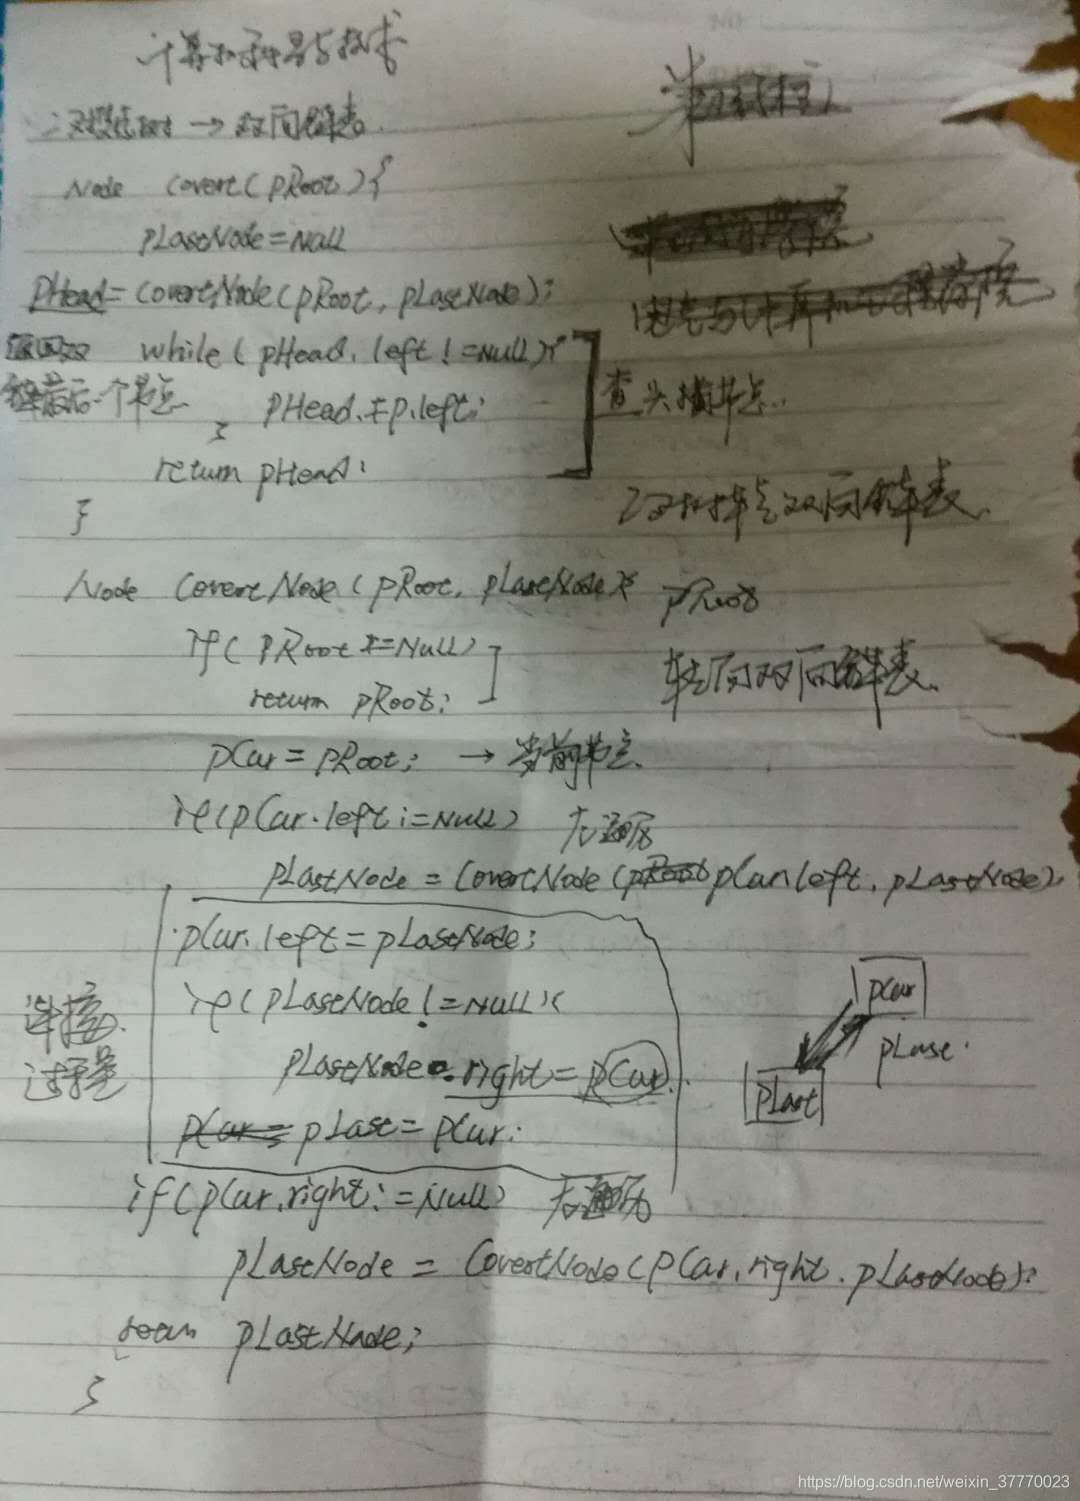 计算机科学与技术
二叉搜索树 → 双向链表.
Node Covert(pRoot){
pLastNode=Null
pHead=CovertNode(pRoot, pLastNode);
while(pHead.left!=Null){
链最后一个节点
pHead.=p.left;
查头节点..
}
return pHead;
}
双向链表.
Node CovertNode(pRoot, pLastNode){
pRoot
if(pRoot==Null)
return pRoot;
转向双向链表.
pCur=pRoot; → 当前节点.
if(pCur.left!=Null) 左遍历
pLastNode = CovertNode(pCur.left, pLastNode);
pCur.left=pLastNode;
连接.
过程
if(pLastNode!=Null){
pLastNode.right=pCur.
pLast=pCur;
pCur
pLast.
pLast
if(pCur.right!=Null)
pLastNode = CovertNode(pCur.right.pLastNode);
pLastNode;
}
https://blog.csdn.net/weixin_37770023